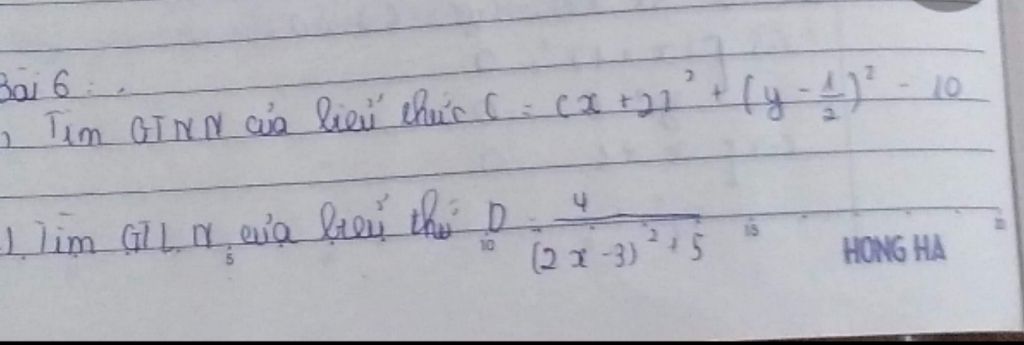 Bài 6:
Tìm GTNN của biểu thức C = (x + 2)² + (y - 1/2)² - 10
Tìm GTLN của biểu thứ D = 4/((2x - 3)² + 5)
5 10 15 20
HONG HA